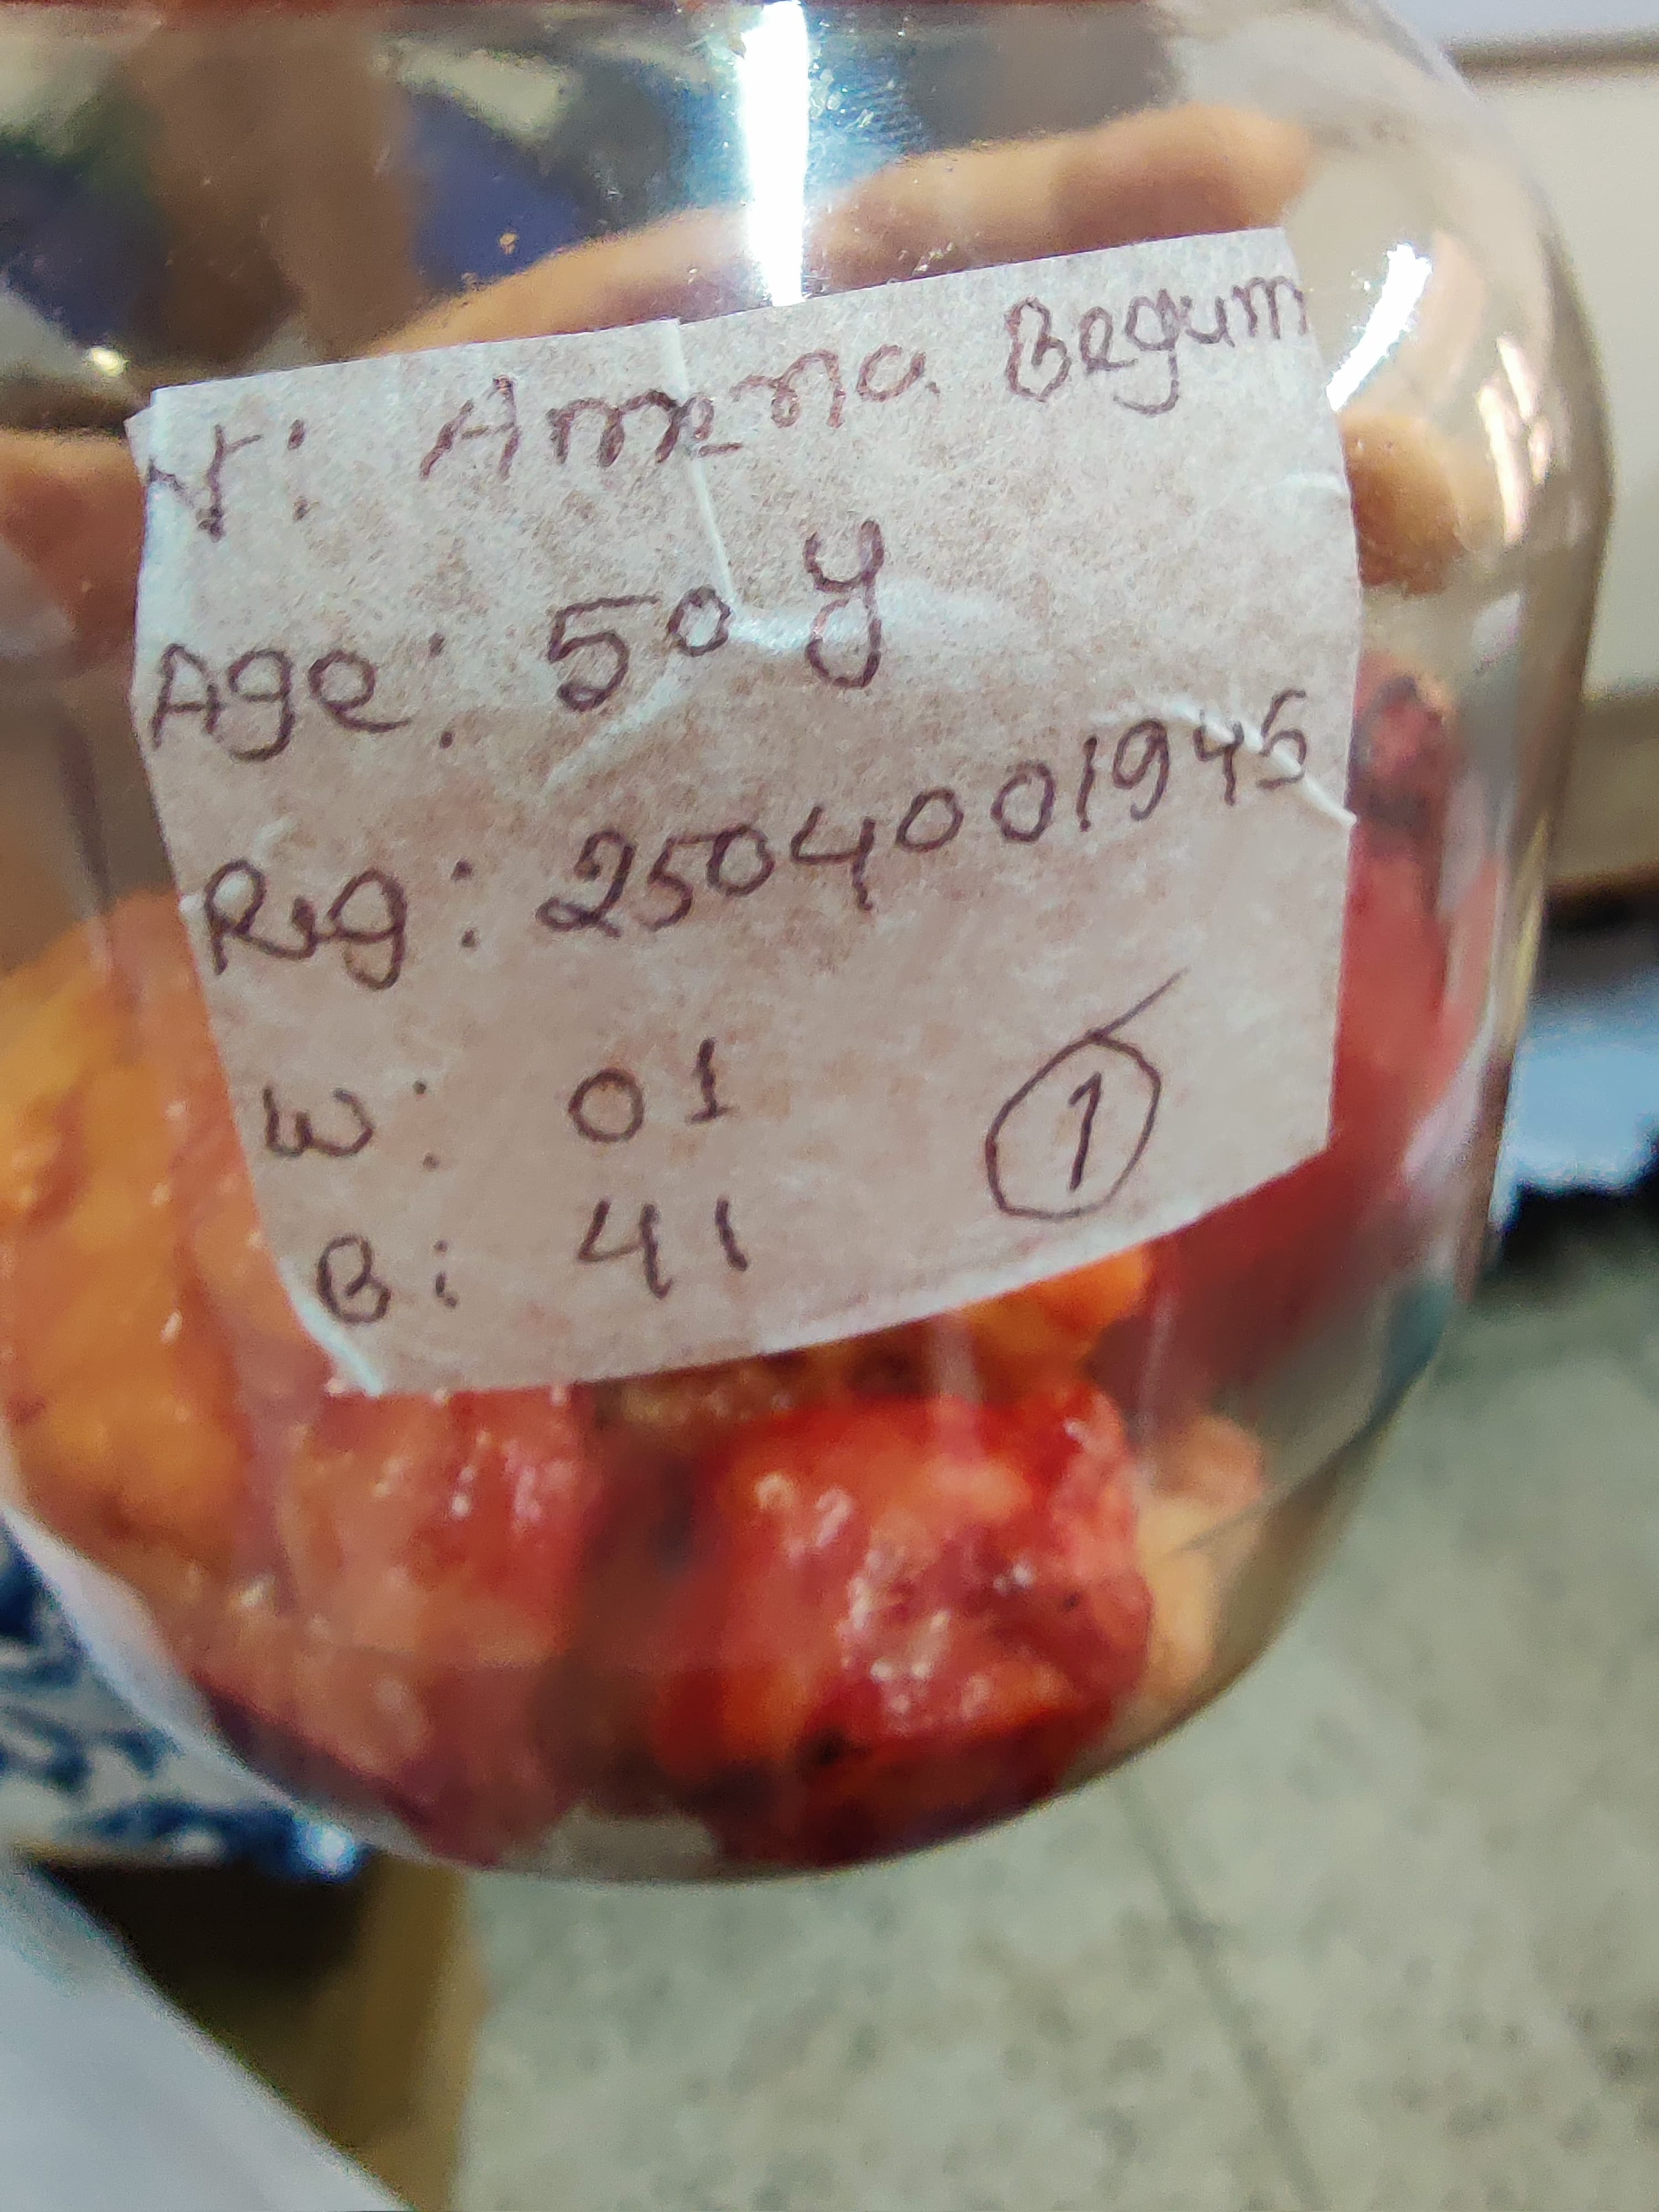 N: Amena Begum
Age: 50 y
Reg: 2504001945
W: 01
1
B: 41